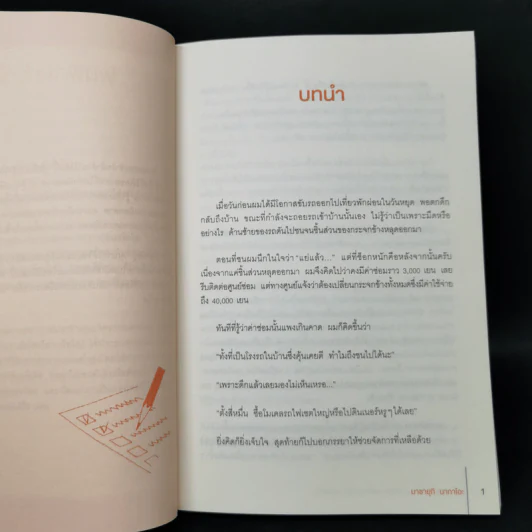 บทนำ
เมื่อวันก่อนผมได้มีโอกาสขับรถออกไปเที่ยวพักผ่อนในวันหยุด พอตกดึก
กลับถึงบ้าน ขณะที่กำลังจะถอยรถเข้าบ้านนั้นเอง ไม่รู้ว่าเป็นเพราะมืดหรือ
อย่างไร ด้านซ้ายของรถดันไปชนจนชิ้นส่วนของกระจกข้างหลุดออกมา
ตอนที่ชนผมนึกในใจว่า "แย่แล้ว..." แต่ที่ช็อกหนักคือหลังจากนั้นครับ
เนื่องจากแค่ชิ้นส่วนหลุดออกมา ผมจึงคิดไปว่าคงมีค่าซ่อมราว 3,000 เยน เลย
รีบติดต่อศูนย์ซ่อม แต่ทางศูนย์แจ้งว่าต้องเปลี่ยนกระจกข้างทั้งหมดซึ่งมีค่าใช้จ่าย
ถึง 40,000 เยน
ทันทีที่รู้ว่าค่าซ่อมนั้นแพงเกินคาด ผมก็คิดขึ้นว่า
"ทั้งที่เป็นโรงรถในบ้านซึ่งคุ้นเคยดี ทำไมถึงชนไปได้นะ"
"เพราะดึกแล้วเลยมองไม่เห็นเหรอ..."
"ทั้งสี่หมื่น ซื้อโมเดลรถไฟเซตใหญ่หรือไปดินเนอร์หรูๆ ได้เลย"
ยิ่งคิดก็ยิ่งเจ็บใจ สุดท้ายก็ไปบอกภรรยาให้ช่วยจัดการที่เหลือด้วย
มาซายูกิ นากาโอะ 1